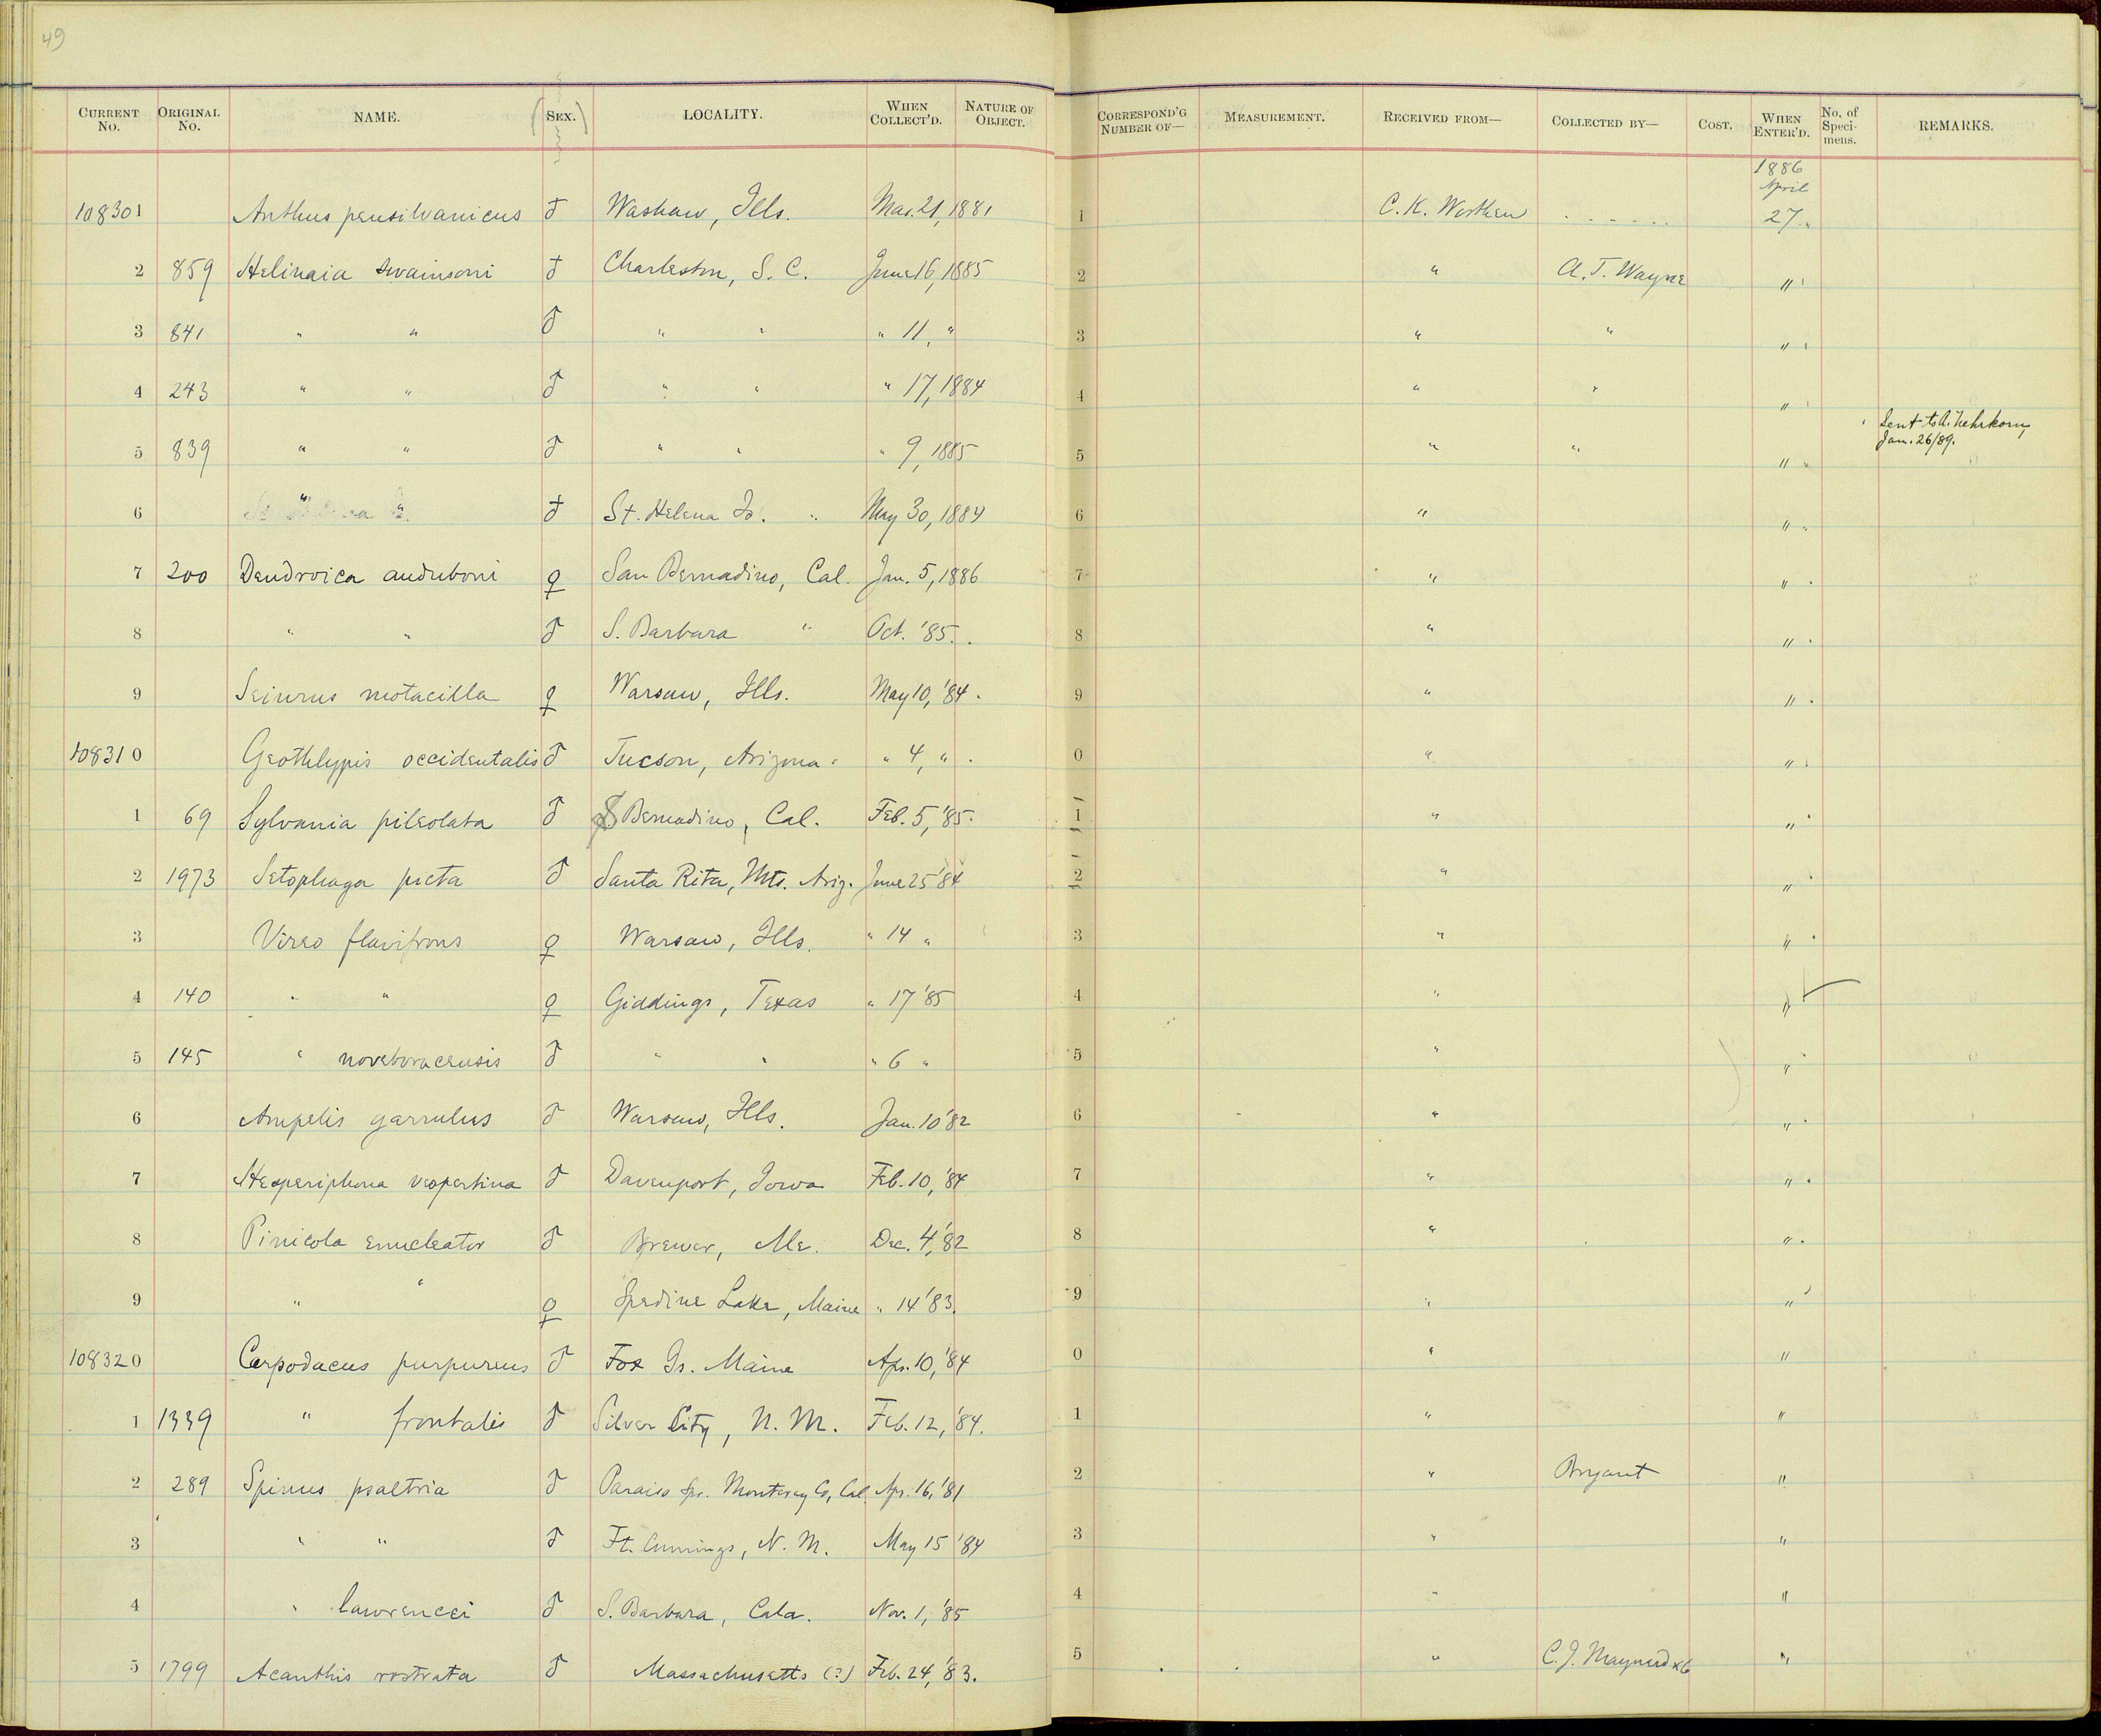 49
CURRENT No. ORIGINAL No. NAME. (SEX.) LOCALITY. WHEN COLLECT'D. NATURE OF OBJECT. CORRESPOND'G NUMBER OF— MEASUREMENT. RECEIVED FROM— COLLECTED BY— COST. WHEN ENTER'D. No. of Speci-mens. REMARKS.
1886
April
108301 Anthus pensilvanicus ♂ Washaw, Ills. Mar. 21, 1881 1 C. K. Worthen . . . . . . 27
2 859 Helinaia swainsoni ♂ Charleston, S. C. June 16, 1885 2 " A. T. Wayne "
3 841 " " ♂ " " " 11, " 3 " " "
4 243 " " ♂ " " " 17, 1884 4 " " "
5 839 " " ♂ " " " 9, 1885 5 " " " Sent to A. Nehrkorn, Jan. 26/89.
6 " " ♂ St. Helena Is. " May 30, 1884 6 " "
7 200 Dendroica auduboni ♀ San Bernadino, Cal. Jan. 5, 1886 7 " "
8 " " ♂ S. Barbara " Oct. '85. 8 " "
9 Seiurus motacilla ♀ Warsaw, Ills. May 10, '84. 9 " "
108310 Geothlypis occidentalis ♂ Tucson, Arizona " 4, " 0 " "
1 69 Sylvania pileolata ♂ S. Bernadino, Cal. Feb. 5, '85. 1 " "
2 1973 Setophaga picta ♂ Santa Rita, Mts. Ariz. June 25 '84 2 " "
3 Vireo flavifrons ♀ Warsaw, Ills. " 14 " 3 " "
4 140 " " ♀ Giddings, Texas " 17 '85 4 " "
5 145 " noveboracensis ♂ " " " 6 " 5 " "
6 Ampelis garrulus ♂ Warsaw, Ills. Jan. 10 '82 6 " "
7 Hesperiphona vespertina ♂ Davenport, Iowa Feb. 10, '84 7 " "
8 Pinicola enucleator ♂ Brewer, Me. Dec. 4, '82 8 " "
9 " " ♀ Spedine Lake, Maine " 14 '83. 9 " "
108320 Carpodacus purpureus ♂ Fox Is. Maine Apr. 10, '84 0 " "
1 1339 " frontalis ♂ Silver City, N. M. Feb. 12, '84. 1 " "
2 289 Spinus psaltria ♂ Paraiso Spr. Monterey Co, Cal. Apr. 16, '81 2 " Bryant "
3 " " ♂ Ft. Cummings, N. M. May 15 '84 3 " "
4 " lawrencei ♂ S. Barbara, Cala. Nov. 1, '85 4 " "
5 1799 Acanthis rostrata ♂ Massachusetts (?) Feb. 24, '83. 5 " C. J. Maynard &Co "